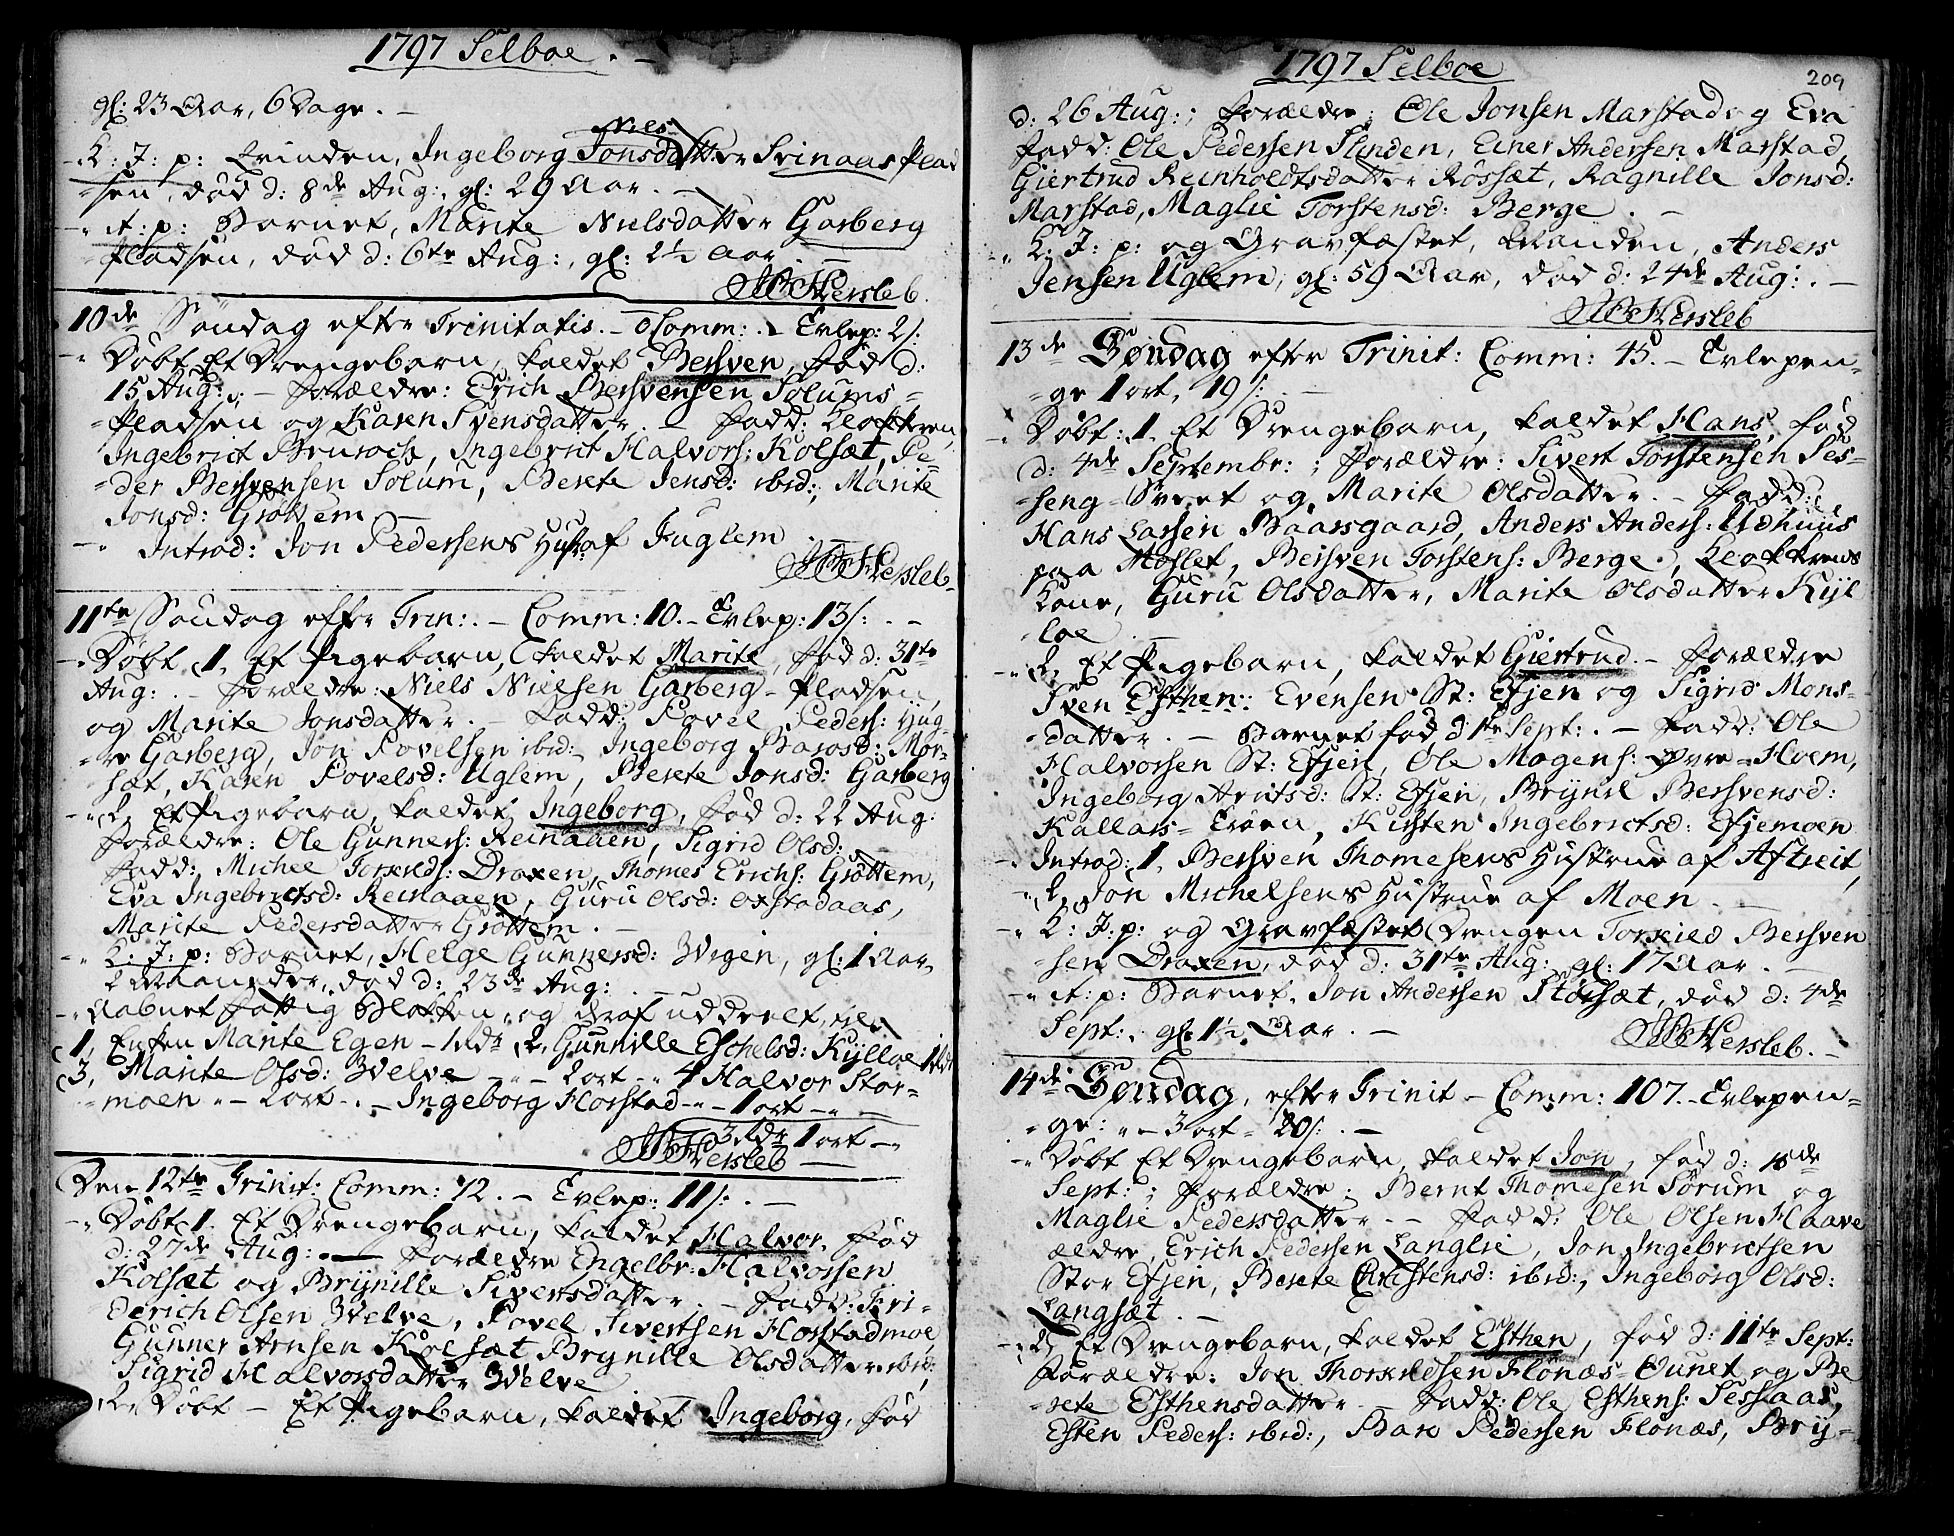 1797 Selboe. –
gl: 23 Aar, 6 Dage. –
- K: J: p: Qvinden, Ingeborg Niels Jonsdatter Srinaas Plad
-sen, død d: 8de Aug:, gl: 29 Aar. –
-" A: p: Barnet, Marite Nielsdatter Garberg
Pladsen, død d: 6te Aug:, gl: 2½ Aar. –
Hersleb.
10de Søndag efter Trinitatis. – 0 Comm: – Evlep: 2/:
-" Døbt Et Drengebarn, kaldet Bersven, fød d:
15 Aug:. – Forældre: Erich Bersvensen Solums=
=Pladsen og Karen Svensdatter. – Fadd: Klokkeren,
Ingebrict Bruroch, Ingebrict Halvors: Kolsæt, Pe=
=der Bersvensen Solum, Berete Jensd: ibid:, Marite
Jonsd: Grøttem –
-" Introd: Jon Pedersens Hustr af Fuglem
Hersleb.
11te Søndag efter Trin:. – Comm: 10. – Evlep: 13/:. –
-" Døbt 1. Et Pigebarn, kaldet Marite, fød d: 31te
Aug:. – Forældre: Niels Nielsen Garberg-Pladsen
og Marite Jonsdatter. – Fadd: Povel Peders: Yug=
=re Garberg, Jon Povelsen ibid:, Ingeborg Baarsd: Mor=
=sæt, Karen Povelsd: Uglem, Berete Jonsd: Garberg
-" 2, Et Pigebarn, kaldet Ingeborg, fød d: 22 Aug:
Forældre: Ole Gunners: Reinaaen, Sigrid Olsd:
Fadd: Michel Torkilds: Draxen, Thomes Erichs: Grøttem,
Eva Ingebrictsd: Reinaaen, Guru Olsd: Oxstadaas,
Marite Pedersdatter Grøttem. –
-" K: J: p: Barnet, Helge Gunnersd: Wigen, gl: 1 Aar,
2 Maaneder, død d: 23de Aug:. –
-" Aabnet Fattig Blokken, og deraf uddeelt, til
1, Enken Marite Egen – 1 rdr 2, Gunnille Eschelsd: Kylloe 1 rdr
3, Marite Olsd: Welve – " – 2 ort – " 4 Halvor Stor=
=moen " – 2 ort –. – Ingeborg Horstad – " – 1 ort – "
3 Rdr 1 ort – "
Hersleb –
Den 12te Trinit: Comm: 72. – Evlep: 11/:. –
-" Døbt 1. Et Drengebarn, kaldet Halvor, fød
d: 27de Aug:. – Forældre Engelbr: Halvorsen
Kolsæt og Brynille Sivertsdatter. – Fadd: Fri=
derich Olsen Welve, Povel Sivertsen Horstadmoe,
Gunner Arnsen Kolsæt Brynille Olsdatter ibid:,
Sigrid Halvorsdatter Welve
2, Døbt – Et Pigebarn, kaldet Ingeborg, fød
1797 Selboe
209
d: 26 Aug:; Forældre; Ole Jonsen Marstad og Eva
Fadd: Ole Pedersen Slinden, Einer Andersen Marstad,
Giertrud Reinholdtsdatter Røssæt, Ragnille Jonsd:
Marstad, Maglie Torstensd: Berge. –
-" K: J: p: og Gravfæstet, Manden, Anders
Jensen Uglem, gl: 59 Aar, død d: 24de Aug:. –
Hersleb
13de Søndag efter Trinit: Comm: 45. – Evlepen=
=ge 1 ort, 19/:. –
-" Døbt: 1. Et Drengebarn, kaldet Hans, fød
d: 4de Septembr:; Forældre: Sivert Torstensen Ses=
=seng= og Marite Olsdatter. – Fadd:
Hans Larsen Baarsgaard, Anders Anders: Udhuus
paa Moslet, Bersven Torstens: Berge, Klokkrens
Kone, Guru Olsdatter, Marite Olsdatter Kyl
loe. –
-" 2, Et Pigebarn, kaldet Giertrud. – Forældre
Sven Esthen: Evensen St: Efjen og Sigrid Mons=
=datter. – Barnet fød d 1te Sept:. – Fadd: Ole
Halvorsen St: Efjen, Ole Mogens: Øvre=Moem,
Ingeborg Arntsd: St: Efjen, Brynil Bersvensd:
Kallars=, Kirsten Ingebrictsd: Efjemoen
-" Introd: 1. Bersven Thomesens Hustrue af Aftreit,
-" 2, Jon Michelsens Hustrue af Moen. –
-" K: J: p: og Gravfæstet Drengen Torkild Bersven
=sen Draxen, død d: 31te Aug: gl: 17 Aar. –
-" A: p: Barnet, Jon Andersen Størsæt, død d: 4de
Sept:. gl: 1½ Aar. –
Hersleb. –
14de Søndag, efter Trinit – Comm: 107. – Evlepen=
=ge: " – 3 ort – 20/:. –
-" Døbt Et Drengebarn, kaldet Jon, fød d: 10de
Sept:; Forældre; Bernt Thomesen Sørum, og
Maglie Pedersdatter. – Fadd: Ole Olsen Haave
ældre, Erich Pedersen Langlie, Jon Ingebrictsen
Stor Efjen, Berete Christensd: ibid:, Ingeborg Olsd:
Langsæt. –
-" 2, Et Drengebarn, kaldet Esthen, fød d: 11te Sept:
Forældre: Jon Thorkildsen Flønæs=Øunet og Be
=rete Esthensdatter. – Fadd: Ole Esthens: Sessaas,
Esten Peders: ibid:, Baar Pedersen Flønæs, Bry=